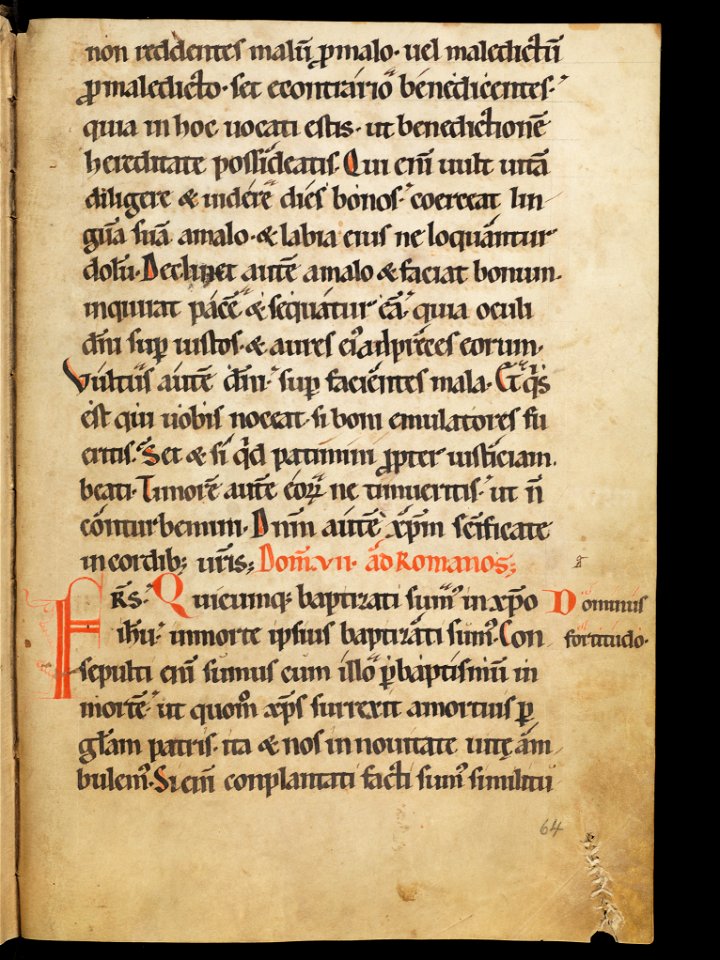 non reddentes malū ꝓmalo· uel maledictū
ꝓmaledicto· set econtrario benedicentes·
quia in hoc uocati estis· ut benedictionē
hereditate possideatis. Qui eni̅ uult uitā
diligere & uidere dies bonos· coerceat lin
guā suā amalo· & labia eius ne loquantur
dolū· Declinet autē amalo & faciat bonum·
inquirat pacē & sequatur eā· quia oculi
dn̄i sup̱ iustos· & aures ei᾽ adpreces eorum·
Vultus autē dn̄i· sup̱ facientes mala· Et q̇s
est qui uobis noceat· si boni emulatores fu
eritis· Set & si qd̄ patimini ꝓpter iusticiam.
beati· Timorē autē eoꝝ ne timueritis· ut n̄
conturbemini· Dnm̄ autē xp̄m sc̄ificate
in cordib; ur̄is; Dom̄. VII· ad Romanos;
FR̄S· Quicumq; baptizati sum᾽ in xp̄o
ih̄u· in morte ipsius baptizati sum᾽· Con
sepulti eni̅ sumus cum illo p̱ baptismū in
mortē· ut quom᾽ xp̄s surrexit amortuis p̱
gl̄am patris· ita & nos in nouitate uitę am̄
bulem᾽· Si eni̅ conplantati facti sum᾽ similitu
Dominus
fortitudo·
64